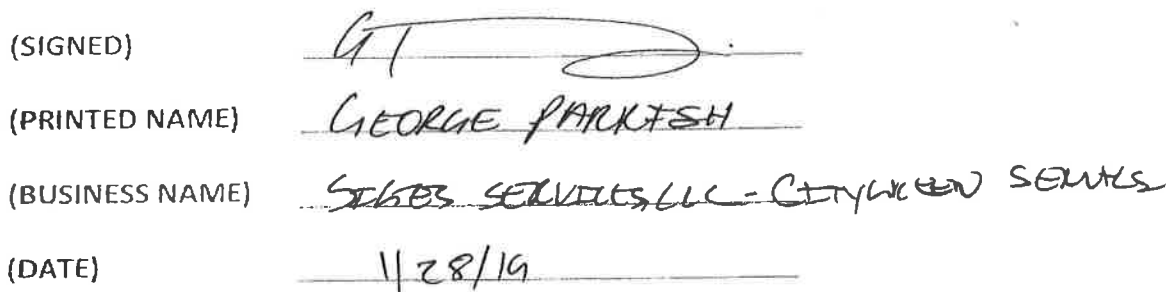 (SIGNED) GT
(PRINTED NAME) GEORGE PARKISH
(BUSINESS NAME) SERVICES, LLC - CITYGREEN SERVICES
(DATE) 1/28/19